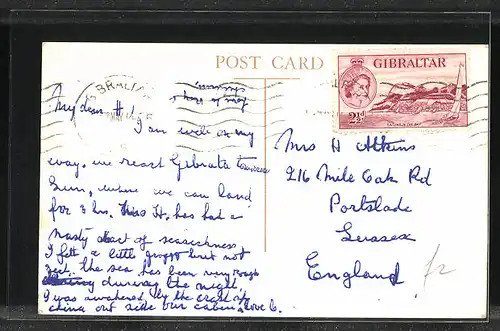 POST CARD
GIBRALTAR
2½d
My dear H!
I am well on my
way, we reach Gibralta tomorrow
9am, where we can land
for 3 hrs. Miss H. has had a
nasty start of seasickness
I felt a little but not
yet. the sea has been very rough
during the night
I was awakened by the crash of
china out side our cabin. Love G.
Mrs H Atkins
216 Mile Oak Rd
Portslade
Sussex
England